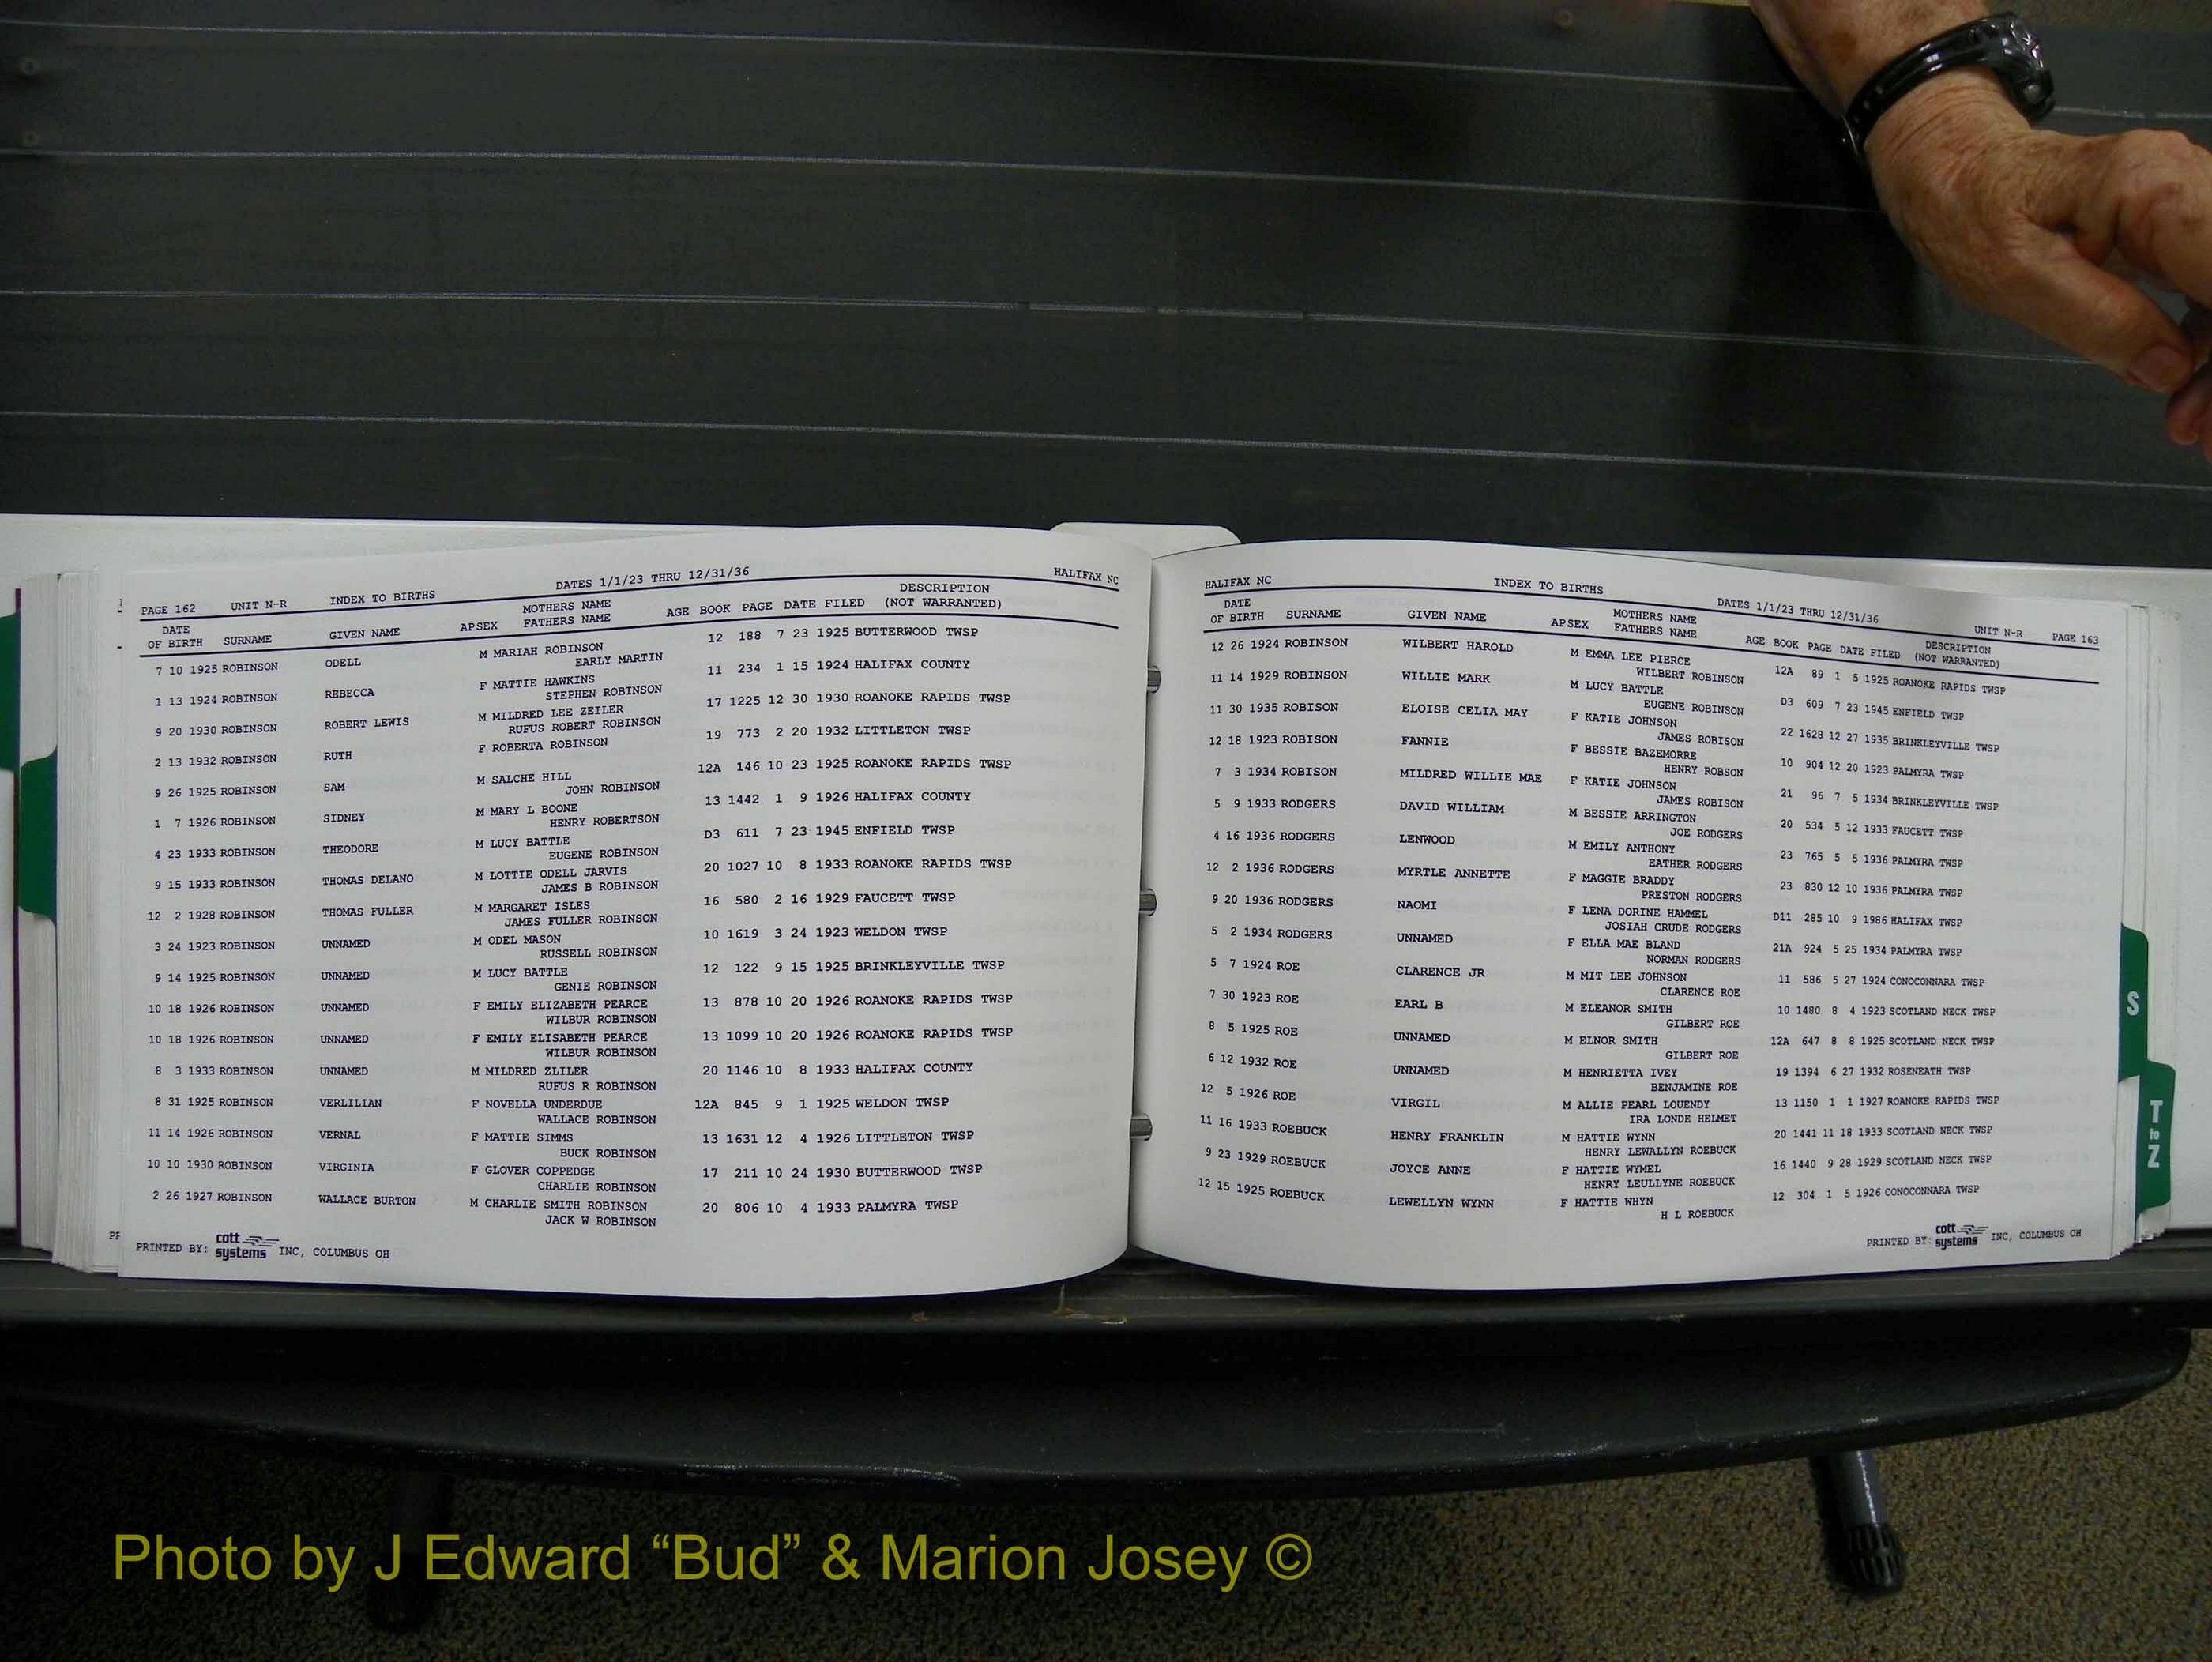 PAGE 162 UNIT N-R INDEX TO BIRTHS DATES 1/1/23 THRU 12/31/36 HALIFAX NC
DATE MOTHERS NAME DESCRIPTION
OF BIRTH SURNAME GIVEN NAME APSEX FATHERS NAME AGE BOOK PAGE DATE FILED (NOT WARRANTED)
7 10 1925 ROBINSON ODELL M MARIAH ROBINSON 12 188 7 23 1925 BUTTERWOOD TWSP
EARLY MARTIN
1 13 1924 ROBINSON REBECCA F MATTIE HAWKINS 11 234 1 15 1924 HALIFAX COUNTY
STEPHEN ROBINSON
9 20 1930 ROBINSON ROBERT LEWIS M MILDRED LEE ZEILER 17 1225 12 30 1930 ROANOKE RAPIDS TWSP
RUFUS ROBERT ROBINSON
2 13 1932 ROBINSON RUTH F ROBERTA ROBINSON 19 773 2 20 1932 LITTLETON TWSP
9 26 1925 ROBINSON SAM M SALCHE HILL 12A 146 10 23 1925 ROANOKE RAPIDS TWSP
JOHN ROBINSON
1 7 1926 ROBINSON SIDNEY M MARY L BOONE 13 1442 1 9 1926 HALIFAX COUNTY
HENRY ROBERTSON
4 23 1933 ROBINSON THEODORE M LUCY BATTLE D3 611 7 23 1945 ENFIELD TWSP
EUGENE ROBINSON
9 15 1933 ROBINSON THOMAS DELANO M LOTTIE ODELL JARVIS 20 1027 10 8 1933 ROANOKE RAPIDS TWSP
JAMES B ROBINSON
12 2 1928 ROBINSON THOMAS FULLER M MARGARET ISLES 16 580 2 16 1929 FAUCETT TWSP
JAMES FULLER ROBINSON
3 24 1923 ROBINSON UNNAMED M ODEL MASON 10 1619 3 24 1923 WELDON TWSP
RUSSELL ROBINSON
9 14 1925 ROBINSON UNNAMED M LUCY BATTLE 12 122 9 15 1925 BRINKLEYVILLE TWSP
GENIE ROBINSON
10 18 1926 ROBINSON UNNAMED F EMILY ELIZABETH PEARCE 13 878 10 20 1926 ROANOKE RAPIDS TWSP
WILBUR ROBINSON
10 18 1926 ROBINSON UNNAMED F EMILY ELISABETH PEARCE 13 1099 10 20 1926 ROANOKE RAPIDS TWSP
WILBUR ROBINSON
8 3 1933 ROBINSON UNNAMED M MILDRED ZLILER 20 1146 10 8 1933 HALIFAX COUNTY
RUFUS R ROBINSON
8 31 1925 ROBINSON VERLILIAN F NOVELLA UNDERDUE 12A 845 9 1 1925 WELDON TWSP
WALLACE ROBINSON
11 14 1926 ROBINSON VERNAL F MATTIE SIMMS 13 1631 12 4 1926 LITTLETON TWSP
BUCK ROBINSON
10 10 1930 ROBINSON VIRGINIA F GLOVER COPPEDGE 17 211 10 24 1930 BUTTERWOOD TWSP
CHARLIE ROBINSON
2 26 1927 ROBINSON WALLACE BURTON M CHARLIE SMITH ROBINSON 20 806 10 4 1933 PALMYRA TWSP
JACK W ROBINSON
PRINTED BY: cott systems INC, COLUMBUS OH
HALIFAX NC INDEX TO BIRTHS DATES 1/1/23 THRU 12/31/36 UNIT N-R PAGE 163
DATE MOTHERS NAME DESCRIPTION
OF BIRTH SURNAME GIVEN NAME APSEX FATHERS NAME AGE BOOK PAGE DATE FILED (NOT WARRANTED)
12 26 1924 ROBINSON WILBERT HAROLD M EMMA LEE PIERCE 12A 89 1 5 1925 ROANOKE RAPIDS TWSP
WILBERT ROBINSON
11 14 1929 ROBINSON WILLIE MARK M LUCY BATTLE D3 609 7 23 1945 ENFIELD TWSP
EUGENE ROBINSON
11 30 1935 ROBISON ELOISE CELIA MAY F KATIE JOHNSON 22 1628 12 27 1935 BRINKLEYVILLE TWSP
JAMES ROBISON
12 18 1923 ROBISON FANNIE F BESSIE BAZEMORRE 10 904 12 20 1923 PALMYRA TWSP
HENRY ROBSON
7 3 1934 ROBISON MILDRED WILLIE MAE F KATIE JOHNSON 21 96 7 5 1934 BRINKLEYVILLE TWSP
JAMES ROBISON
5 9 1933 RODGERS DAVID WILLIAM M BESSIE ARRINGTON 20 534 5 12 1933 FAUCETT TWSP
JOE RODGERS
4 16 1936 RODGERS LENWOOD M EMILY ANTHONY 23 765 5 5 1936 PALMYRA TWSP
EATHER RODGERS
12 2 1936 RODGERS MYRTLE ANNETTE F MAGGIE BRADDY 23 830 12 10 1936 PALMYRA TWSP
PRESTON RODGERS
9 20 1936 RODGERS NAOMI F LENA DORINE HAMMEL D11 285 10 9 1986 HALIFAX TWSP
JOSIAH CRUDE RODGERS
5 2 1934 RODGERS UNNAMED F ELLA MAE BLAND 21A 924 5 25 1934 PALMYRA TWSP
NORMAN RODGERS
5 7 1924 ROE CLARENCE JR M MIT LEE JOHNSON 11 586 5 27 1924 CONOCONNARA TWSP
CLARENCE ROE
7 30 1923 ROE EARL B M ELEANOR SMITH 10 1480 8 4 1923 SCOTLAND NECK TWSP
GILBERT ROE
8 5 1925 ROE UNNAMED M ELNOR SMITH 12A 647 8 8 1925 SCOTLAND NECK TWSP
GILBERT ROE
6 12 1932 ROE UNNAMED M HENRIETTA IVEY 19 1394 6 27 1932 ROSENEATH TWSP
BENJAMINE ROE
12 5 1926 ROE VIRGIL M ALLIE PEARL LOUENDY 13 1150 1 1 1927 ROANOKE RAPIDS TWSP
IRA LONDE HELMET
11 16 1933 ROEBUCK HENRY FRANKLIN M HATTIE WYNN 20 1441 11 18 1933 SCOTLAND NECK TWSP
HENRY LEWALLYN ROEBUCK
9 23 1929 ROEBUCK JOYCE ANNE F HATTIE WYMEL 16 1440 9 28 1929 SCOTLAND NECK TWSP
HENRY LEULLYNE ROEBUCK
12 15 1925 ROEBUCK LEWELLYN WYNN F HATTIE WHYN 12 304 1 5 1926 CONOCONNARA TWSP
H L ROEBUCK
PRINTED BY: cott systems INC, COLUMBUS OH
S
T to Z
Photo by J Edward “Bud” & Marion Josey ©